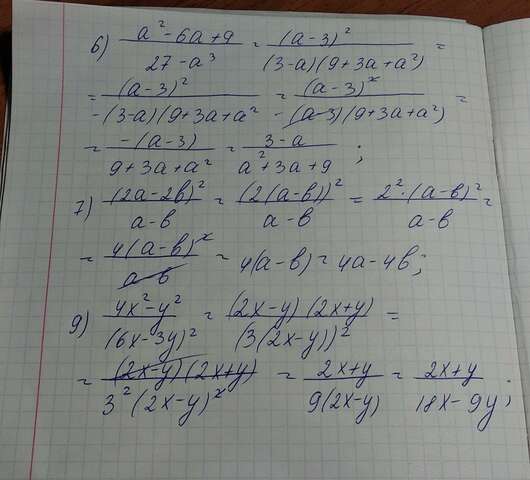 6) (a² - 6a + 9)/(27 - a³) = (a-3)²/((3-a)(9+3a+a²)) =
= (a-3)²/(-(3-a)(9+3a+a²) = (a-3)²/(-(a-3)(9+3a+a²)) =
= -(a-3)/(9+3a+a²) = (3-a)/(a²+3a+9) ;
7) (2a-2b)²/(a-b) = (2(a-b))²/(a-b) = 2²·(a-b)²/(a-b) =
= 4(a-b)²/(a-b) = 4(a-b) = 4a-4b ;
9) (4x²-y²)/(6x-3y)² = (2x-y)(2x+y)/(3(2x-y))² =
= (2x-y)(2x+y)/(3²(2x-y)²) = (2x+y)/(9(2x-y)) = (2x+y)/(18x-9y) ;